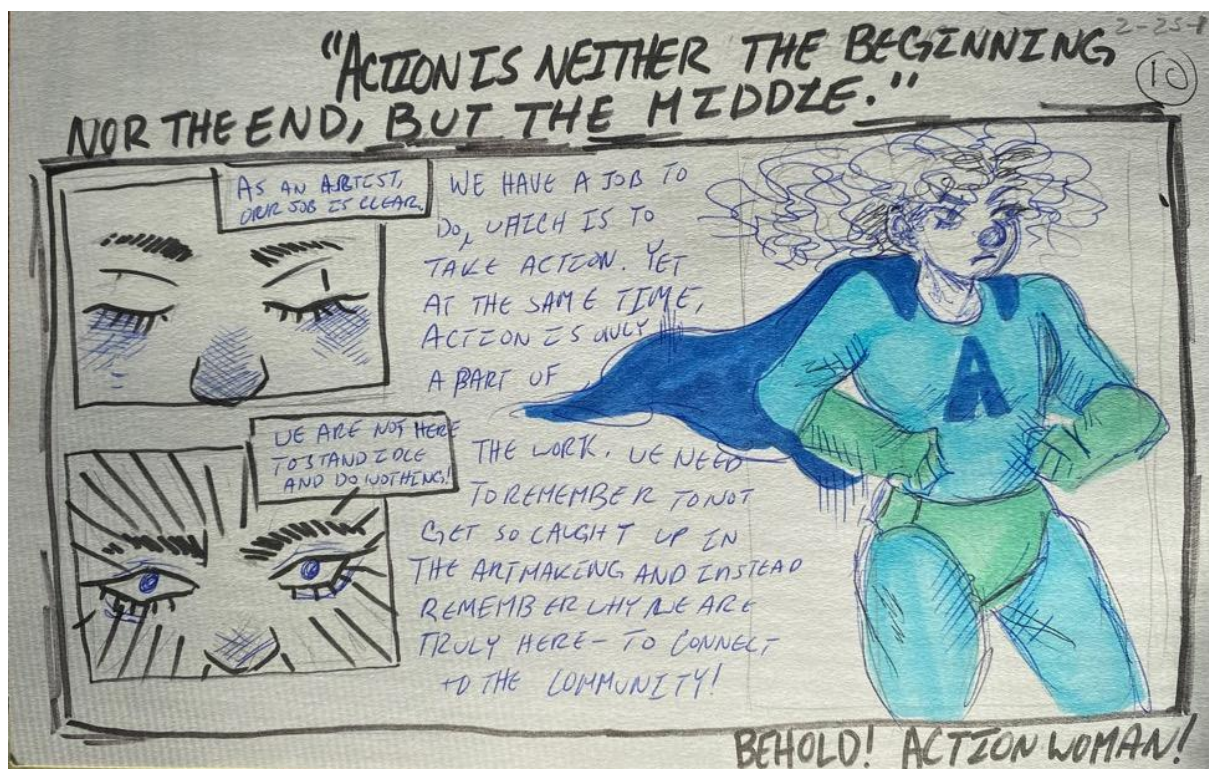 2-25-
"ACTION IS NEITHER THE BEGINNING,
10
NOR THE END, BUT THE MIDDLE."
AS AN ARTIST,
OUR JOB IS CLEAR.
WE ARE NOT HERE
TO STAND IDLE
AND DO NOTHING!
WE HAVE A JOB TO
DO, WHICH IS TO
TAKE ACTION. YET
AT THE SAME TIME,
ACTION IS ONLY
A PART OF
THE WORK. WE NEED
TO REMEMBER TO NOT
GET SO CAUGHT UP IN
THE ARTMAKING AND INSTEAD
REMEMBER WHY WE ARE
TRULY HERE - TO CONNECT
TO THE COMMUNITY!
A
BEHOLD! ACTION WOMAN!